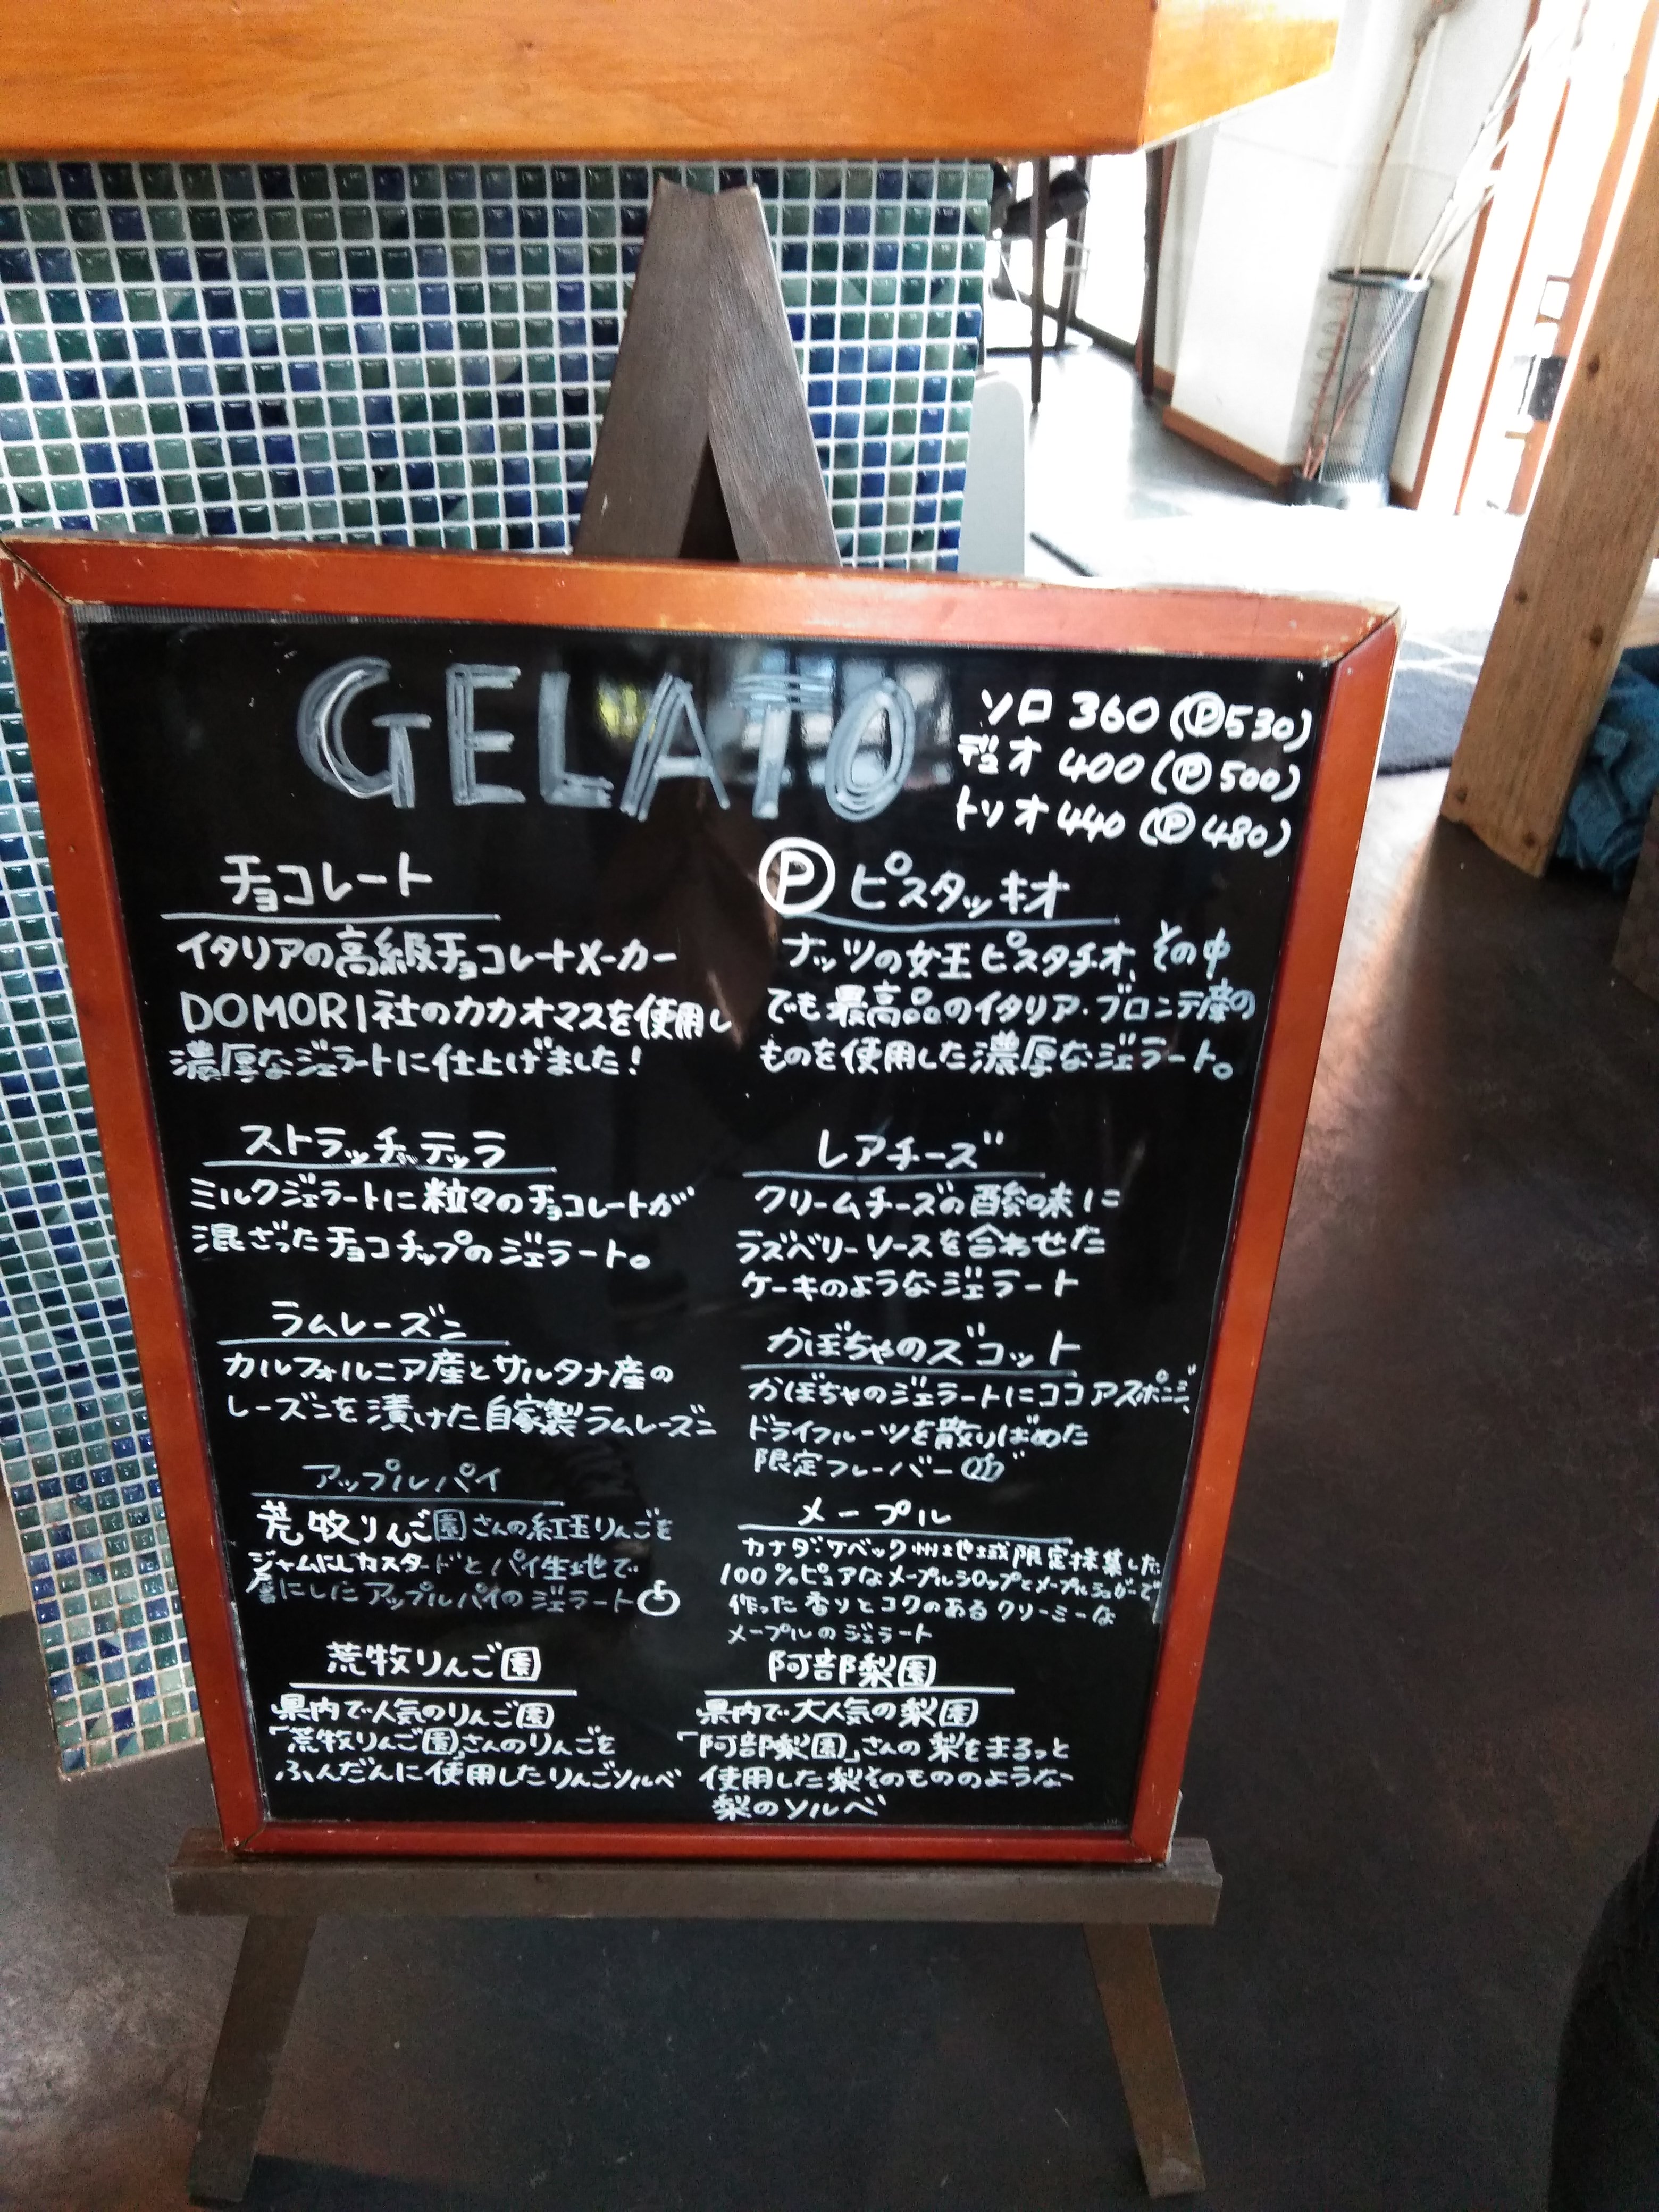 GELATO
ソロ 360 (Ⓟ530)
デュオ 400 (Ⓟ500)
トリオ 440 (Ⓟ480)
チョコレート
イタリアの高級チョコレートメーカー
DOMORI社のカカオマスを使用し
濃厚なジェラートに仕上げました!
ストラッチャテッラ
ミルクジェラートに粒々のチョコレートが
混ざったチョコチップのジェラート。
ラムレーズン
カルフォルニア産とサルタナ産の
レーズンを漬けた自家製ラムレーズン
アップルパイ
荒牧りんご園さんの紅玉りんごを
ジャムにしカスタードとパイ生地で
層にしたアップルパイのジェラート
荒牧りんご園
県内で人気のりんご園
「荒牧りんご園」さんのりんごを
ふんだんに使用したりんごソルベ
Ⓟ ピスタッキオ
ナッツの女王ピスタチオ、その中
でも最高品のイタリア・ブロンテ産の
ものを使用した濃厚なジェラート。
レアチーズ
クリームチーズの酸味に
ラズベリーソースを合わせた
ケーキのようなジェラート
かぼちゃのズコット
かぼちゃのジェラートにココアスポンジ、
ドライフルーツを散りばめた
限定フレーバー
メープル
カナダ・ケベック州地域限定採集した
100%ピュアなメープルシロップとメープルシュガーで
作った香りとコクのあるクリーミーな
メープルのジェラート
阿部梨園
県内で大人気の梨園
「阿部梨園」さんの梨をまるっと
使用した梨そのもののような
梨のソルベ